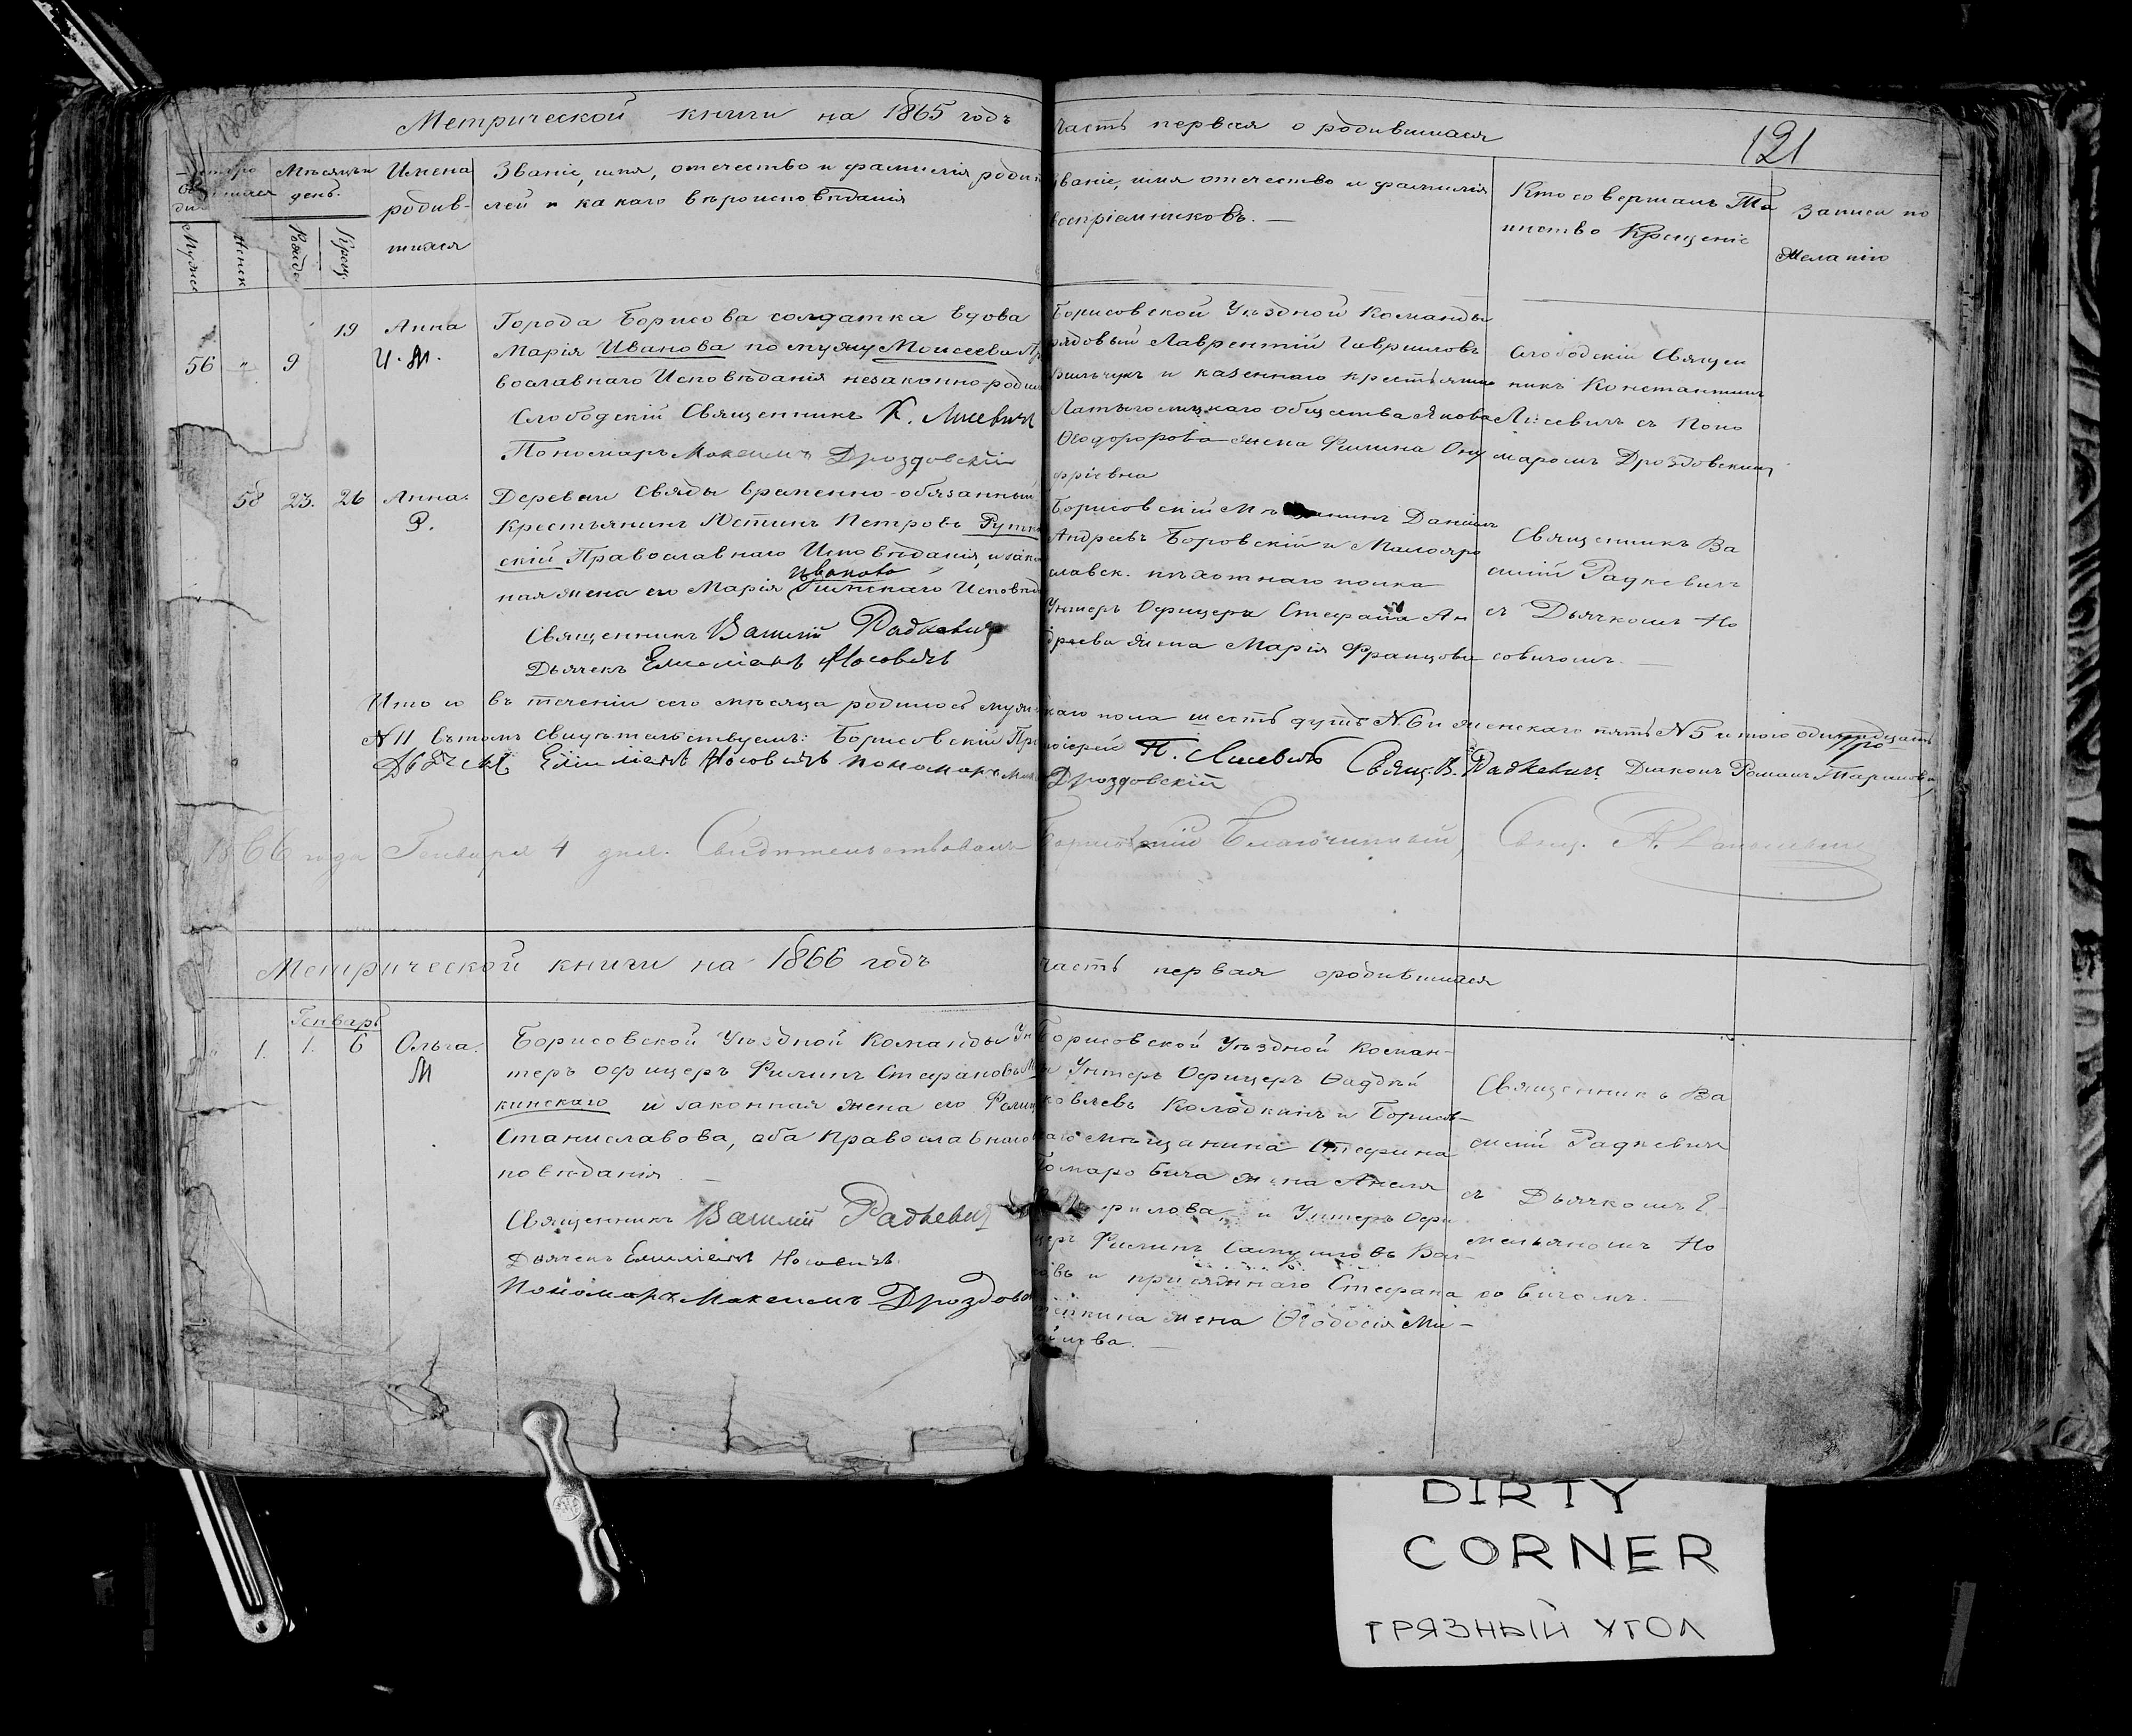 Метрической книги на 1865 годъ часть первая о родившихся
121
Мѣсяцъ и день.
Имена родив-шихся
Званіе, имя, отечество и фамилія родителей и какаго вѣроисповѣданія
Званіе, имя отечество и фамилія воспріемниковъ. —
Кто совершалъ Таинство Крещеніе
Записи по желанію
Мужеск
Женск
Рожде
Крещ.
56 " 9 19 Анна И. М.
Города Борисова солдатка вдова
Марія Иванова по мужу Моисеева Пра
вославнаго Исповѣданія незаконнорожд
Слободскій Священникъ К. Лисевичъ
Пономарь Максимъ Дроздовскій
Борисовской Уѣздной Команды
рядовый Лаврентій Гавриловъ
и казеннаго крестьянина
общества Якова
жена Филипа Ону
фріевна
Слободскій Священ
никъ Константинъ
Лисевичъ съ Поно
маромъ Дроздовскимъ
58 23. 26 Анна. Р.
Деревни Свяды временно-обязанный
Крестьянинъ Юстинъ Петровъ Рутк
скій Православнаго Исповѣданія, и зако
Иванова
ная жена его Марія Римскаго Исповѣд
Священникъ Василій Радкевичъ
Дьячекъ Емиліанъ Носовичъ
Борисовскій Мѣщанинъ Даніилъ
Андреевъ Боровскій и Малояро
славск. пѣхотнаго полка
Унтеръ Офицера Стефана Ан
дреева жена Марія Францова
Священникъ Ва
силій Радкевичъ
съ Дьячкомъ Но
совичомъ. —
Итого въ теченіи сего мѣсяца родилось мужескаго пола шесть душъ N. 6 и женскаго пять N 5 итого одинадцать
N 11 въ томъ свидѣтельствуемъ: Борисовскій Протоіерей П. Лисевичъ Свящ. В. Радкевичъ Діаконъ Романъ
Дьячекъ Емиліанъ Носовичъ Пономарь Дроздовскій
1866 года Генваря 4 дня. Свидѣтельствовалъ Борисовскій Благочинный, Свящ. А.
Метрической книги на 1866 годъ часть первая о родившихся
Генварь
1. 1. 6 Ольга. М
Борисовской Уѣздной Команды Ун
теръ офицеръ Филипъ Стефановъ М
кинскаго и законная жена его
Станиславова, оба Православнаго
повѣданія —
Священникъ Василій Радкевичъ
Дьячекъ Емиліанъ Носовичъ.
Пономарь Максимъ Дроздовс
Борисовской Уѣздной Коман-
ы Унтеръ Офицеръ Фаддѣй
ковлевъ Колодкинъ и Борисов-
каго мѣщанина Стефана
жена Анеля
и Унтеръ Офи
церъ Филипъ
въ и присяжнаго Стефана
жена Ѳеодосія Ми-
Священникъ Ва
силій Радкевичъ
съ Дьячкомъ Е-
мельяномъ Но
совичомъ. —
DIRTY
CORNER
ГРЯЗНЫЙ УГОЛ